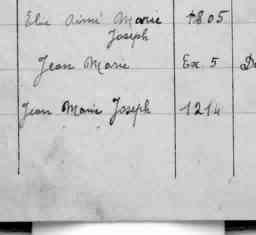 Elie Aimé Marie 1805
Joseph
Jean Marie Ex 5 De
Jean Marie Joseph 1214